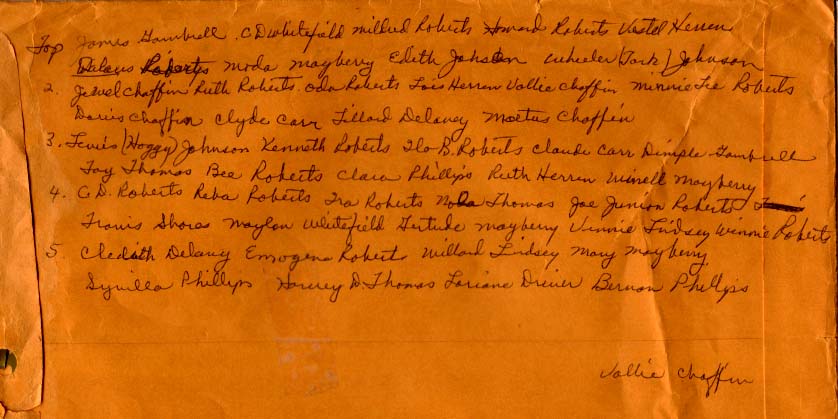 Top James Gambrell C D Whitefield Mildred Roberts Howard Roberts Vastel Herren
Roberts Moda Mayberry Edith Johnson Wheeler (Tork) Johnson
2. Jewel Chaffin Ruth Roberts Oda Roberts Lois Herren Vallie Chaffin Minnie Lee Roberts
Doris Chaffin Clyde Carr Tillard Delaney Moetus Chaffin
3. Lewis (Hoggy) Johnson Kenneth Roberts Ilo B. Roberts Claude Carr Dimple Gambrell
Fay Thomas Bee Roberts Clara Phillips Ruth Herren Winell Mayberry
4. C. D. Roberts Reba Roberts Ira Roberts Nola Thomas Joe Junior Roberts
Travis Shores Maylon Whitefield Gertude Mayberry Vinnie Lindsey Winnie Roberts
5. Cledith Delany Emogene Roberts Willard Lindsey Mary Mayberry
Synilla Phillips D. Thomas Loriane Driver Bernon Phillips
Vallie Chaffin